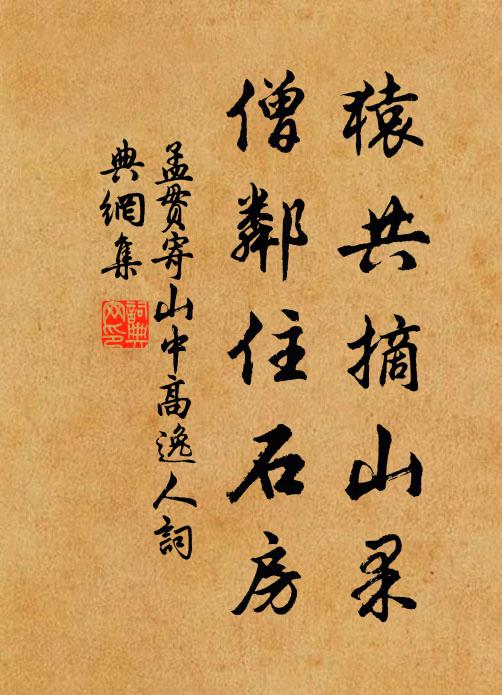 猿共摘山果
僧鄰住石房
孟貫寄山中高逸人詞
典網集
詞典
网印